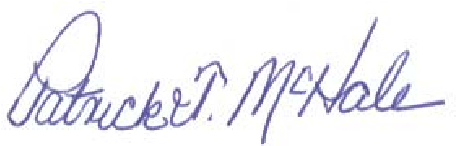 Patrick T. McHale